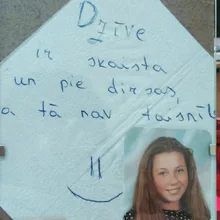 Dzīve
ir skaista
un pie dirsas,
a tā nav taisnī